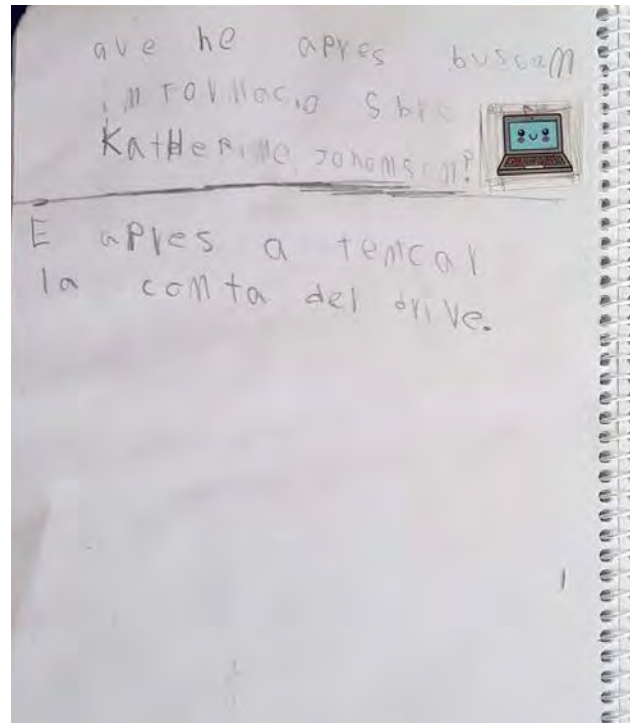 ave he apres buscam
imformasio sbre
KatHeRiNe Johomsom?
E apres a temcar
la comta del drive.